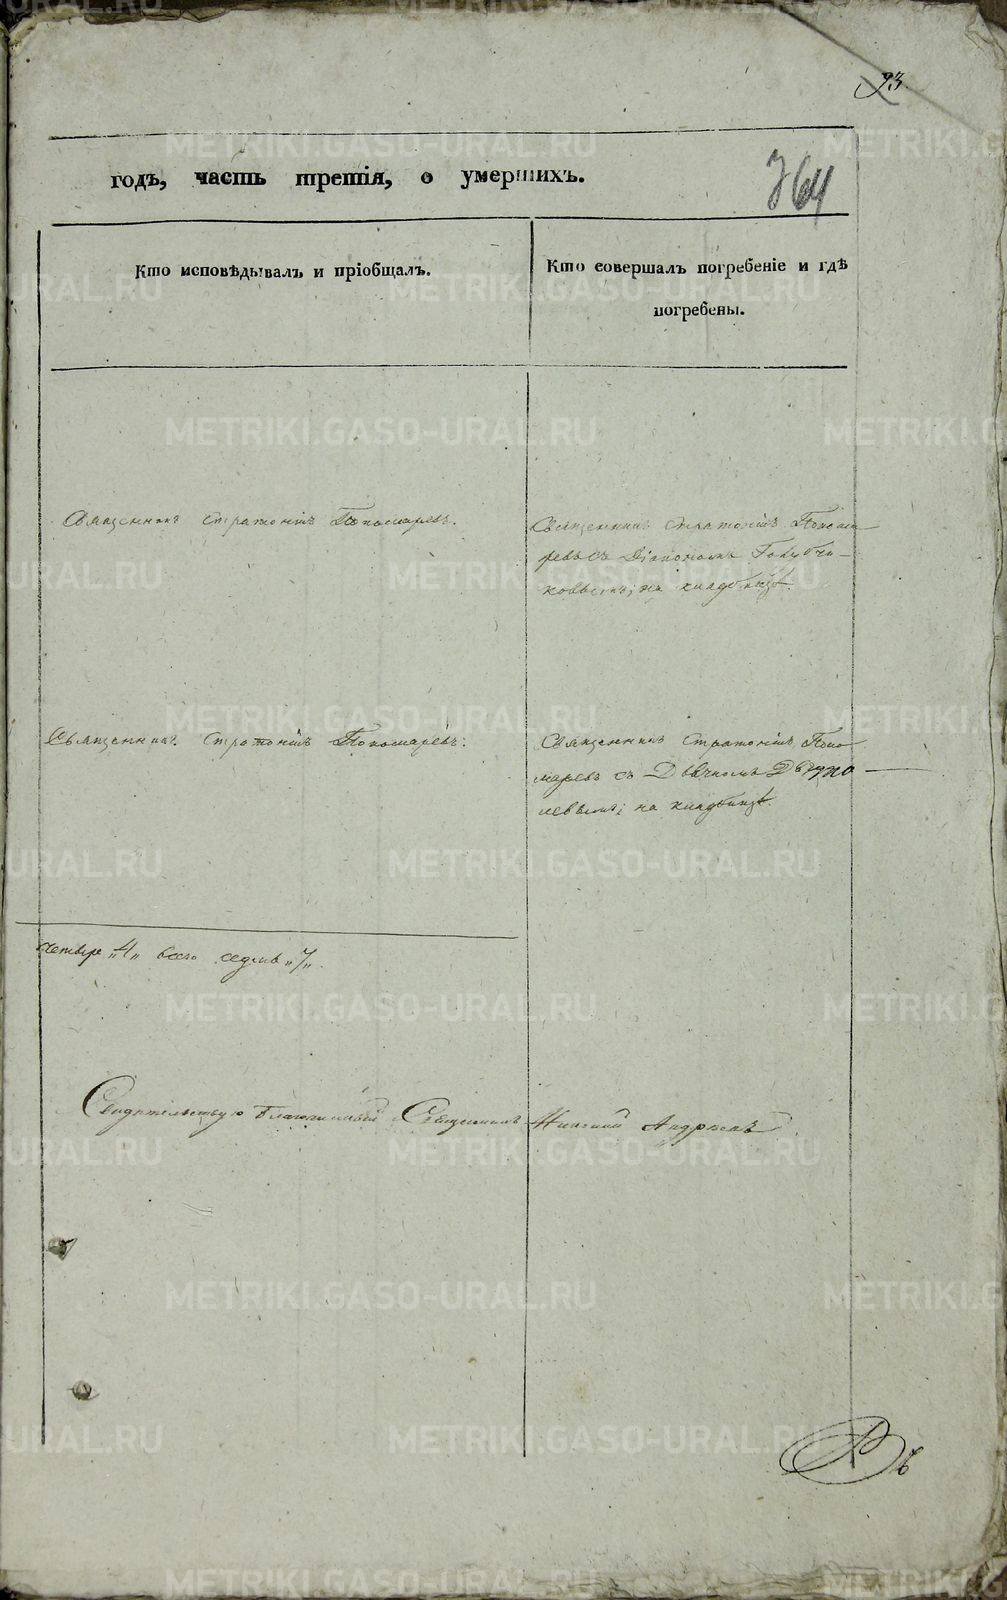 93.
годъ, часть третія, о умершихъ.
764
Кто исповѣдывалъ и пріобщалъ.
Кто совершалъ погребеніе и гдѣ
погребены.
Священникъ Стратоникъ Пономаревъ.
Священникъ Стратоникъ Понома
ревъ съ Діакономъ Голубчи-
ковымъ; на кладбищѣ.
Священникъ Стратоникъ Пономаревъ.
Священникъ Стратоникъ Поно
маревъ съ
левымъ; на кладбищѣ.
четыре „4„ всего седмь „7„.
Свидѣтельствую Благочинный Священникъ Андреевъ
METRIKI.GASO-URAL.RU